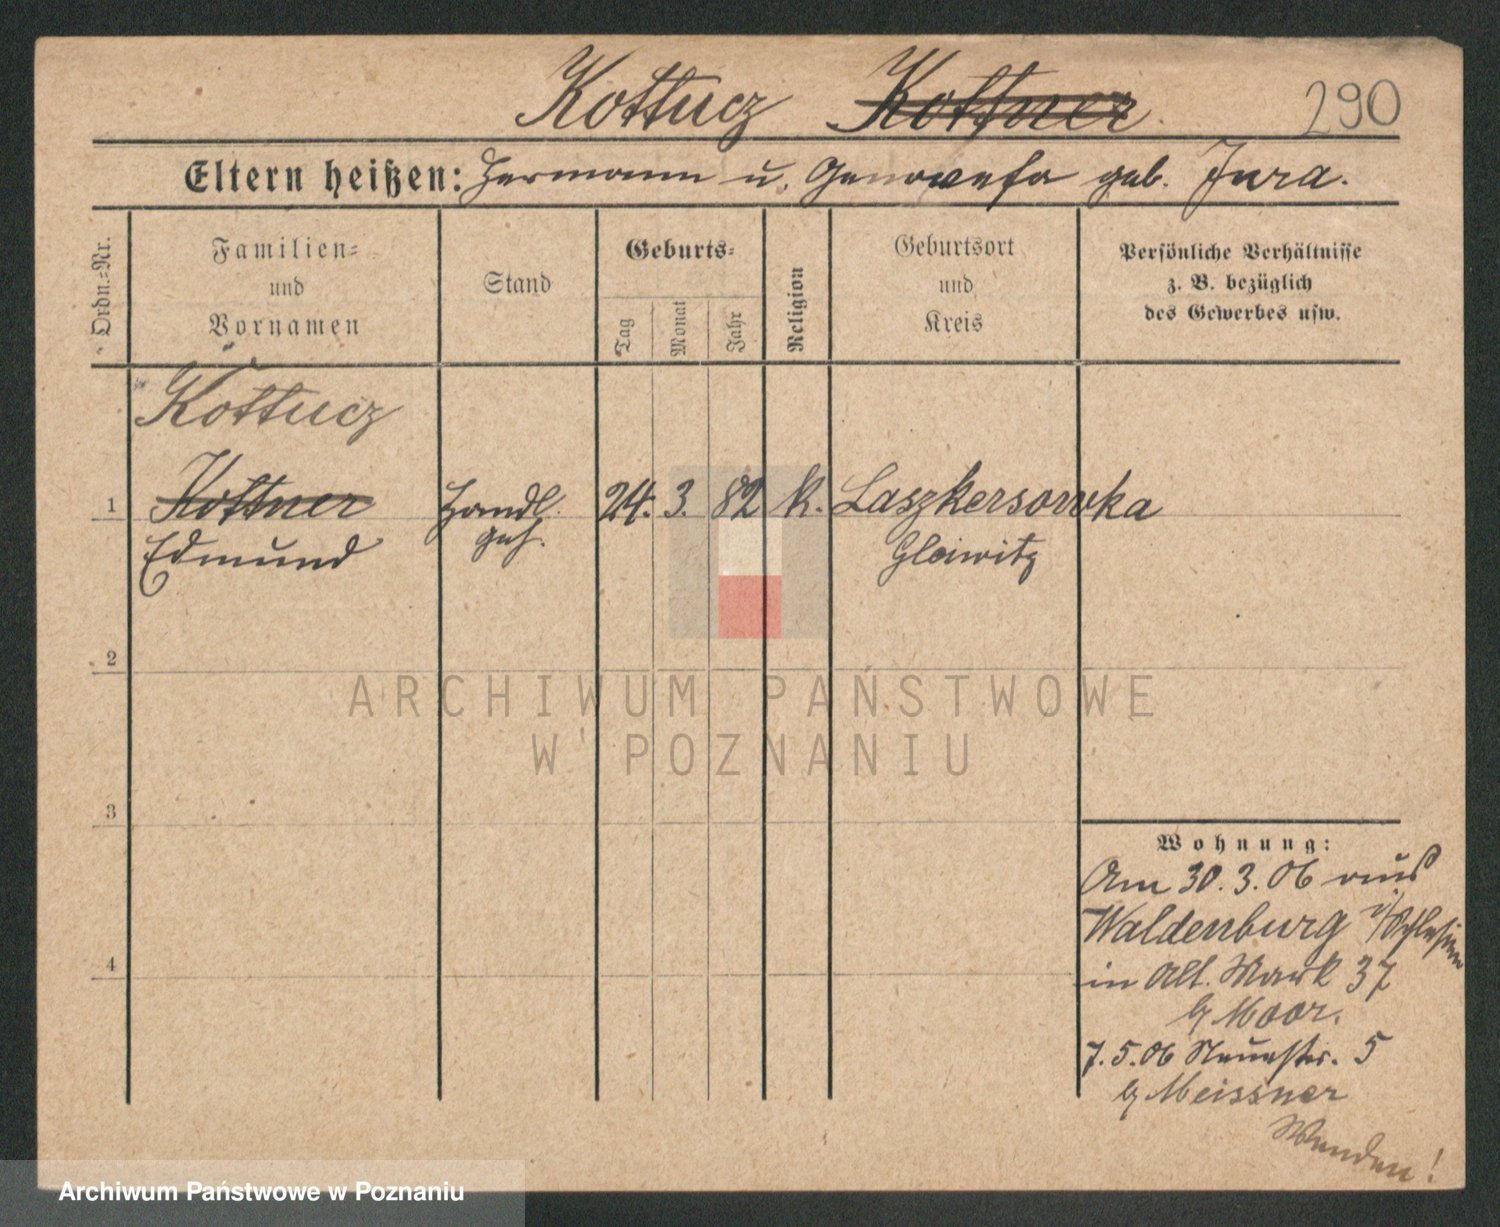 Kottucz Kottner 290
Eltern heißen: Hermann u. Genowefa geb. Jura.
Ordn.=Nr.
Familien=
und
Vornamen
Stand
Geburts=
Tag
Monat
Jahr
Religion
Geburtsort
und
Kreis
Persönliche Verhältnisse
z. B. bezüglich
des Gewerbes usw.
Kottucz
1 Kottner Handl. 24. 3. 82 k. Laszkersowka
Edmund geh. Gleiwitz
2
3
4
Wohnung:
Am 30.3.06 aus
Waldenburg i/Schlesien
in Alt. Markt 37
b/ Moor.
7.5.06 Neuestr. 5
b/ Meissner
Wenden!
ARCHIWUM PAŃSTWOWE
W POZNANIU
Archiwum Państwowe w Poznaniu